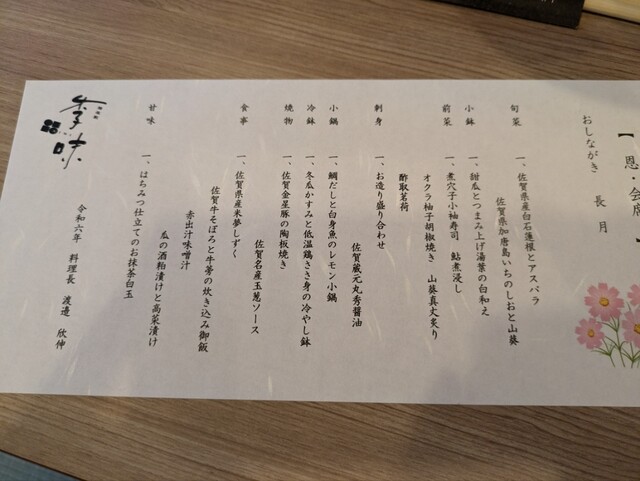 【 恩・会席
おしながき　長月
旬菜　一、佐賀県産白石蓮根とアスパラ
佐賀県加唐島いちのしおと山葵
小鉢　一、甜瓜とつまみ上げ湯葉の白和え
前菜　一、煮穴子小袖寿司　鮎煮浸し
オクラ柚子胡椒焼き　山葵真丈炙り
酢取茗荷
刺身　一、お造り盛り合わせ
佐賀蔵元丸秀醤油
小鍋　一、鯛だしと白身魚のレモン小鍋
冷鉢　一、冬瓜かすみと低温鶏ささ身の冷やし鉢
焼物　一、佐賀金星豚の陶板焼き
佐賀名産玉葱ソース
食事　一、佐賀県産米夢しずく
佐賀牛そぼろと牛蒡の炊き込み御飯
赤出汁味噌汁
瓜の酒粕漬けと高菜漬け
甘味　一、はちみつ仕立てのお抹茶白玉
令和六年　料理長　渡邉　欣伸
季味